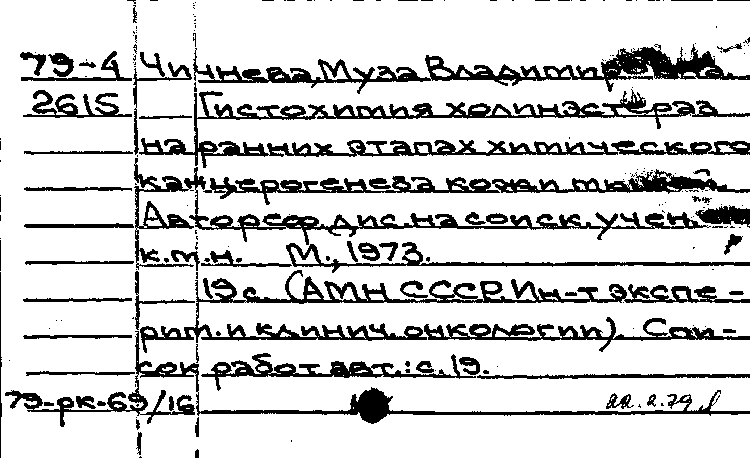 79-4 Чичнева, Муза Владимировна.
2615 Гистохимия холинэстераз
на ранних этапах химического
канцерогенеза кожи мышей.
Автореф. дис. на соиск. учен.
к.м.н. М., 1973.
19 с. (АМН СССР. Ин-т экспе-
рим. и клинич. онкологии). Спи-
сок работ авт.: с. 19.
79-рк-69/16